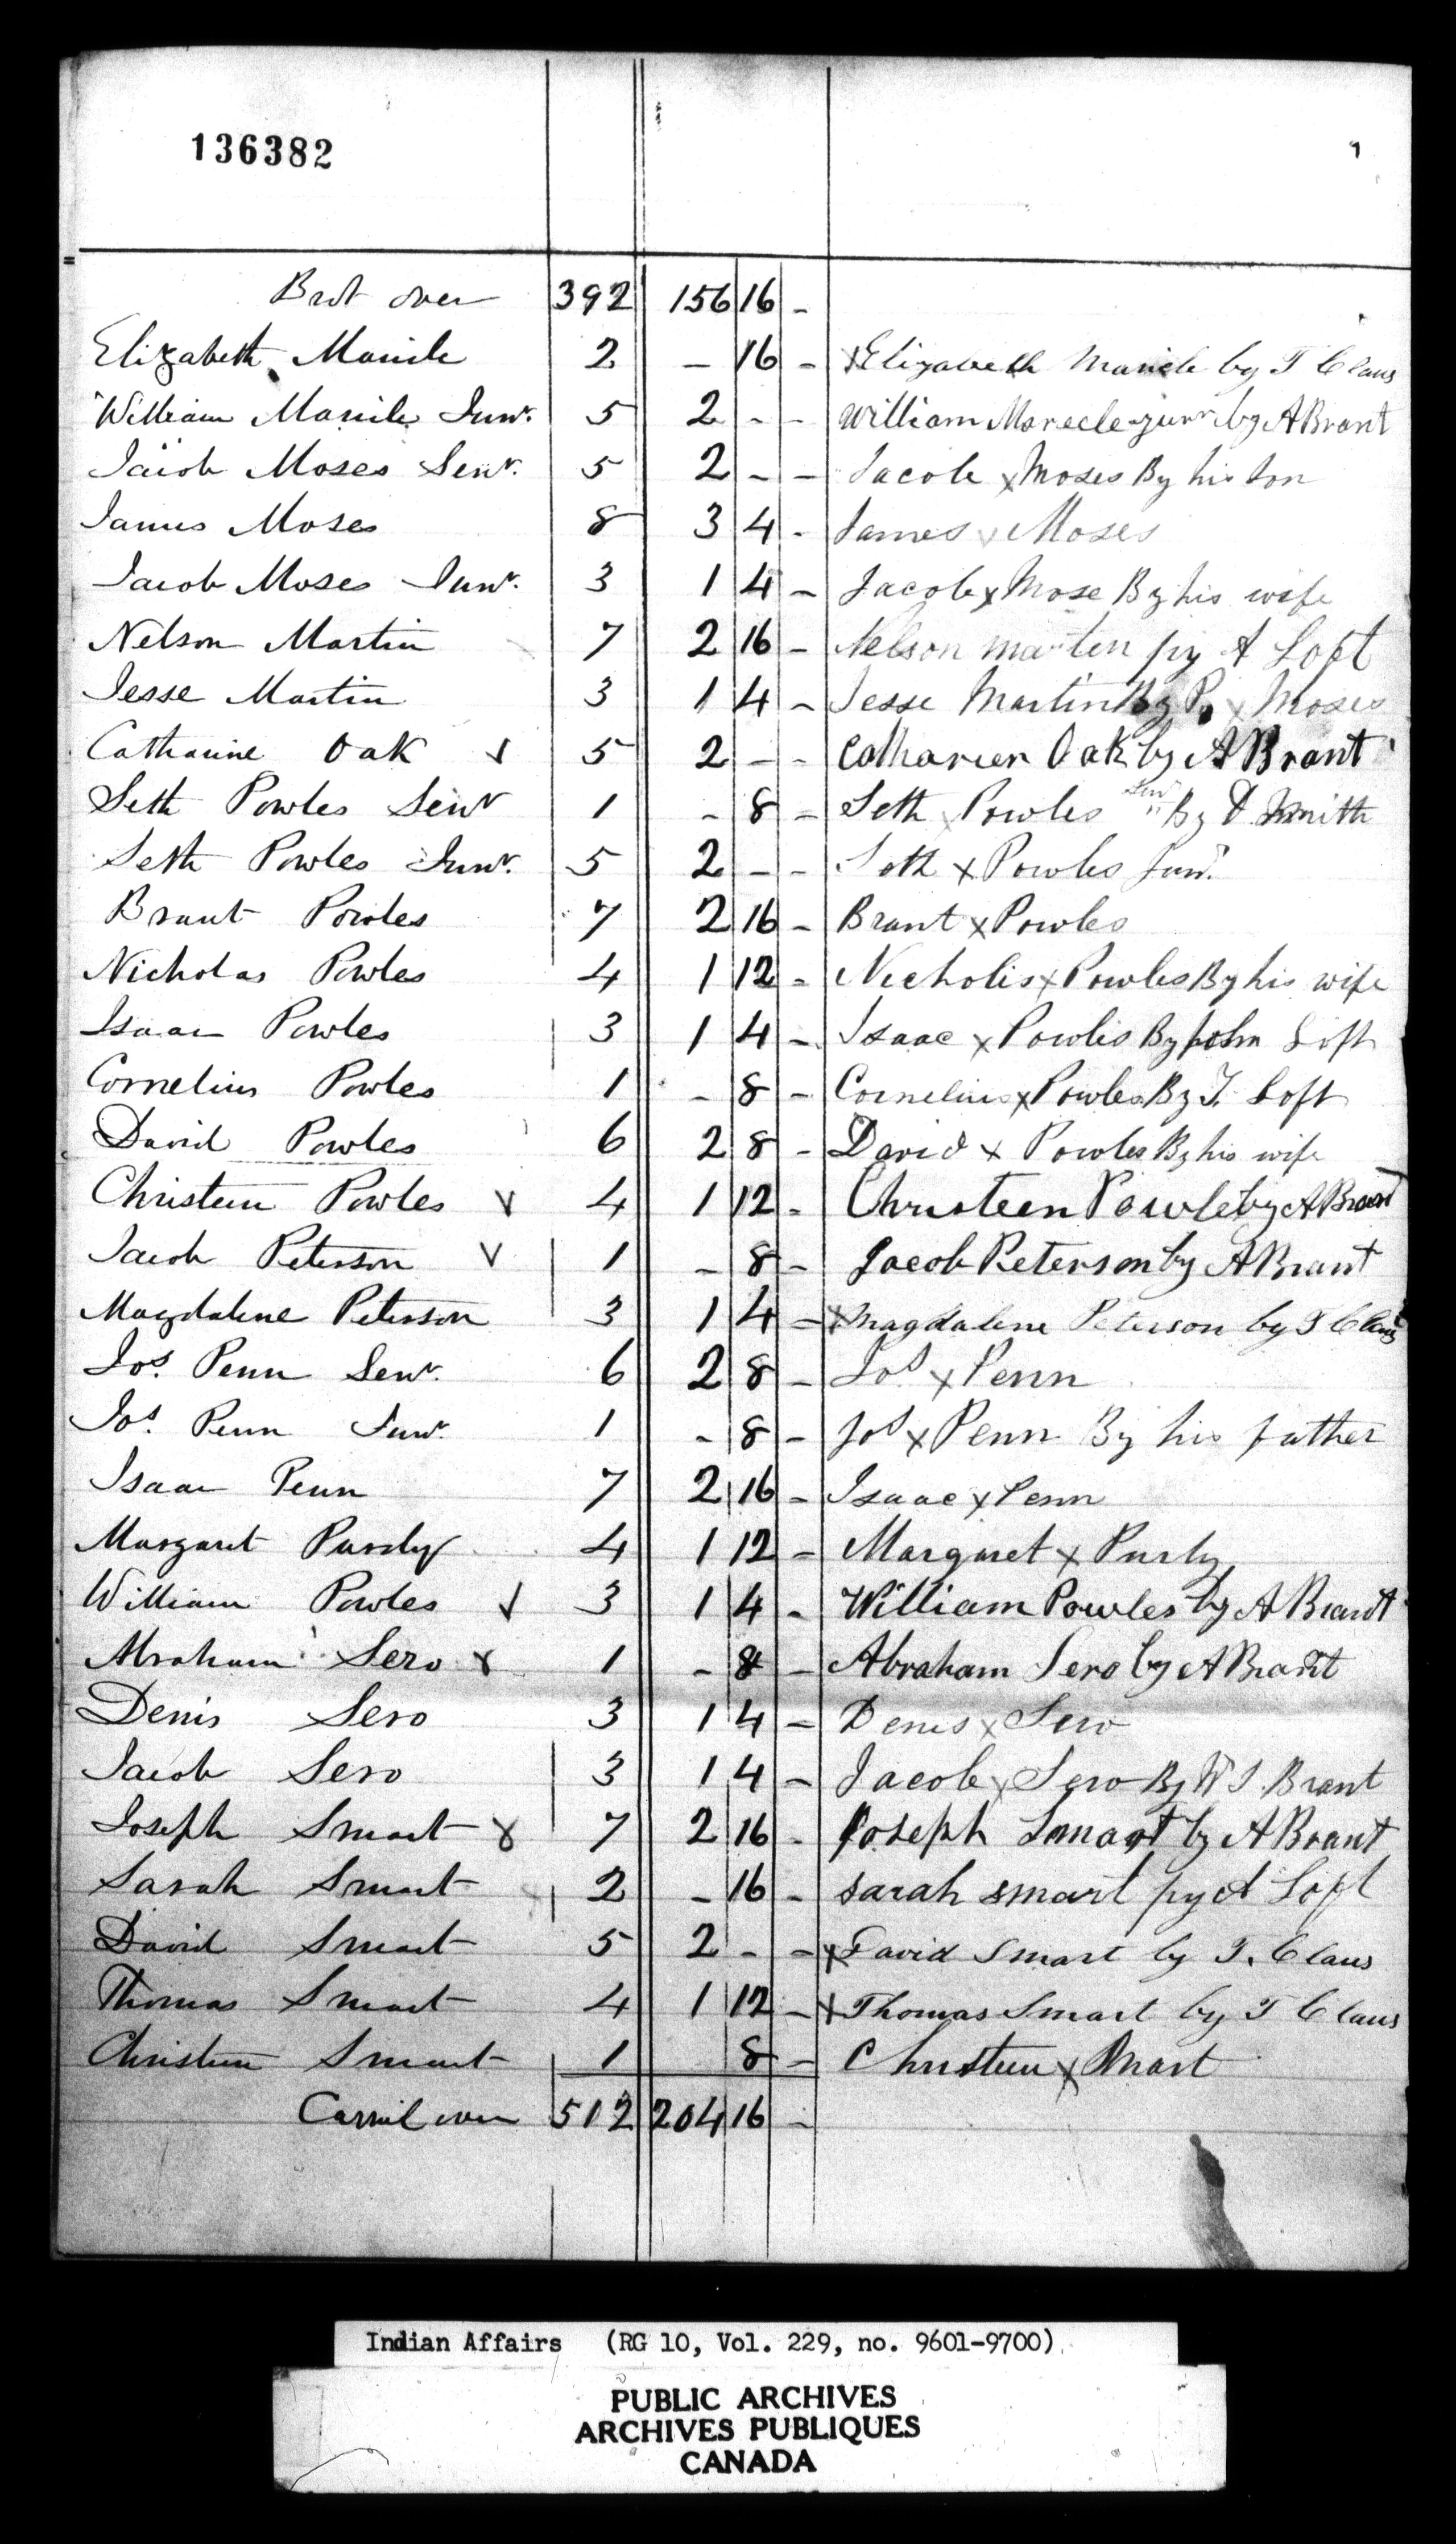 136382
Brot over 392 156 16 -
Elizabeth Maricle 2 - 16 - x Elizabeth Maricle by T Claus
William Maricle Junr. 5 2 - - William Marecle junr by A Brant
Jacob Moses Senr. 5 2 - - Jacob x Moses By his Son
James Moses 8 3 4 - James x Moses
Jacob Moses Junr. 3 1 4 - Jacob x Mose By his wife
Nelson Martin 7 2 16 - Nelson marten py A Loft
Jesse Martin 3 1 4 - Jesse Martin By P. x Moses
Catharine Oak v 5 2 - - Catharien Oak by A Brant
Seth Powles Senr 1 - 8 - Seth x Powles Senr By D Smith
Seth Powles Junr. 5 2 - - Seth x Powles Junr.
Brant Powles 7 2 16 - Brant x Powles
Nicholas Powles 4 1 12 - Necholis x Powles By his wife
Isaac Powles 3 1 4 - Isaac x Powlis By John Loft
Cornelius Powles 1 - 8 - Cornelius x Powles By J. Loft
David Powles 6 2 8 - David x Powles By his wife
Christeen Powles v 4 1 12 - Christeen Powle by A Brant
Jacob Peterson v 1 - 8 - Jacob Peterson by A Brant
Magdalene Peterson 3 1 4 - x Magdalene Peterson by T Claus
Jos. Penn Senr. 6 2 8 - Jos x Penn
Jos. Penn Junr. 1 - 8 - Jos x Penn By his father
Isaac Penn 7 2 16 - Isaac x Penn
Margaret Pursly 4 1 12 - Margaret x Pursly
William Powles v 3 1 4 - William Powles by A Brant
Abraham Sero x 1 - 8 - Abraham Sero by A Brant
Denis Sero 3 1 4 - Denis x Sero
Jacob Sero 3 1 4 - Jacob x Sero By W J. Brant
Joseph Smart x 7 2 16 - Joseph Smart by A Brant
Sarah Smart 2 - 16 - sarah smart py A Loft
David Smart 5 2 - - x David Smart by T. Claus
Thomas Smart 4 1 12 - x Thomas Smart by T Claus
Christeen Smart 1 8 - Christeen x Smart
Carried over 512 204 16 -
Indian Affairs (RG 10, Vol. 229, no. 9601-9700)
PUBLIC ARCHIVES
ARCHIVES PUBLIQUES
CANADA